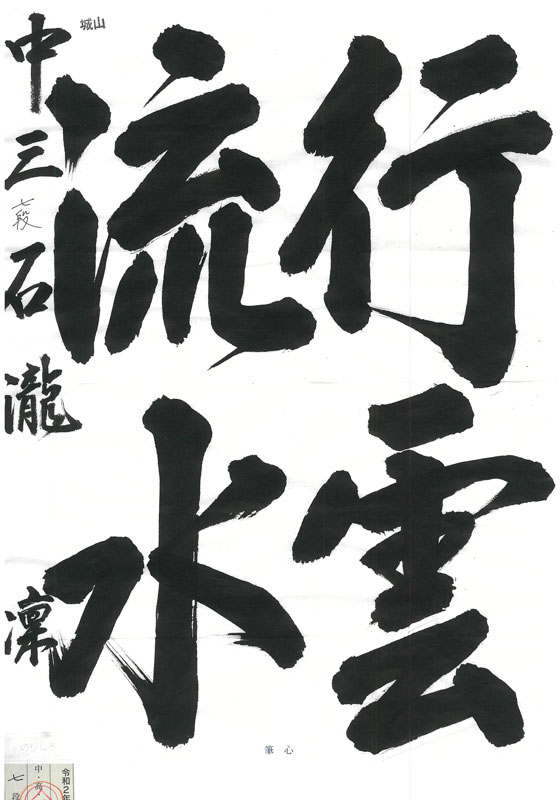 行雲
流水
城山
中三 七段 石瀧 凜
心筆
のりしろ
令和2年
中・高
七段